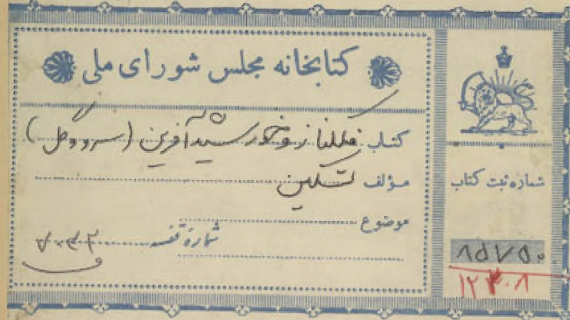 کتابخانه مجلس شورای ملی
کتاب فلکناز و خورشید آفرین (سرو و گل)
مؤلف تسکین
موضوع
شماره قفسه ۷۰۳۳
شماره ثبت کتاب
۸۵۷۵۰
۱۲۳۰۸